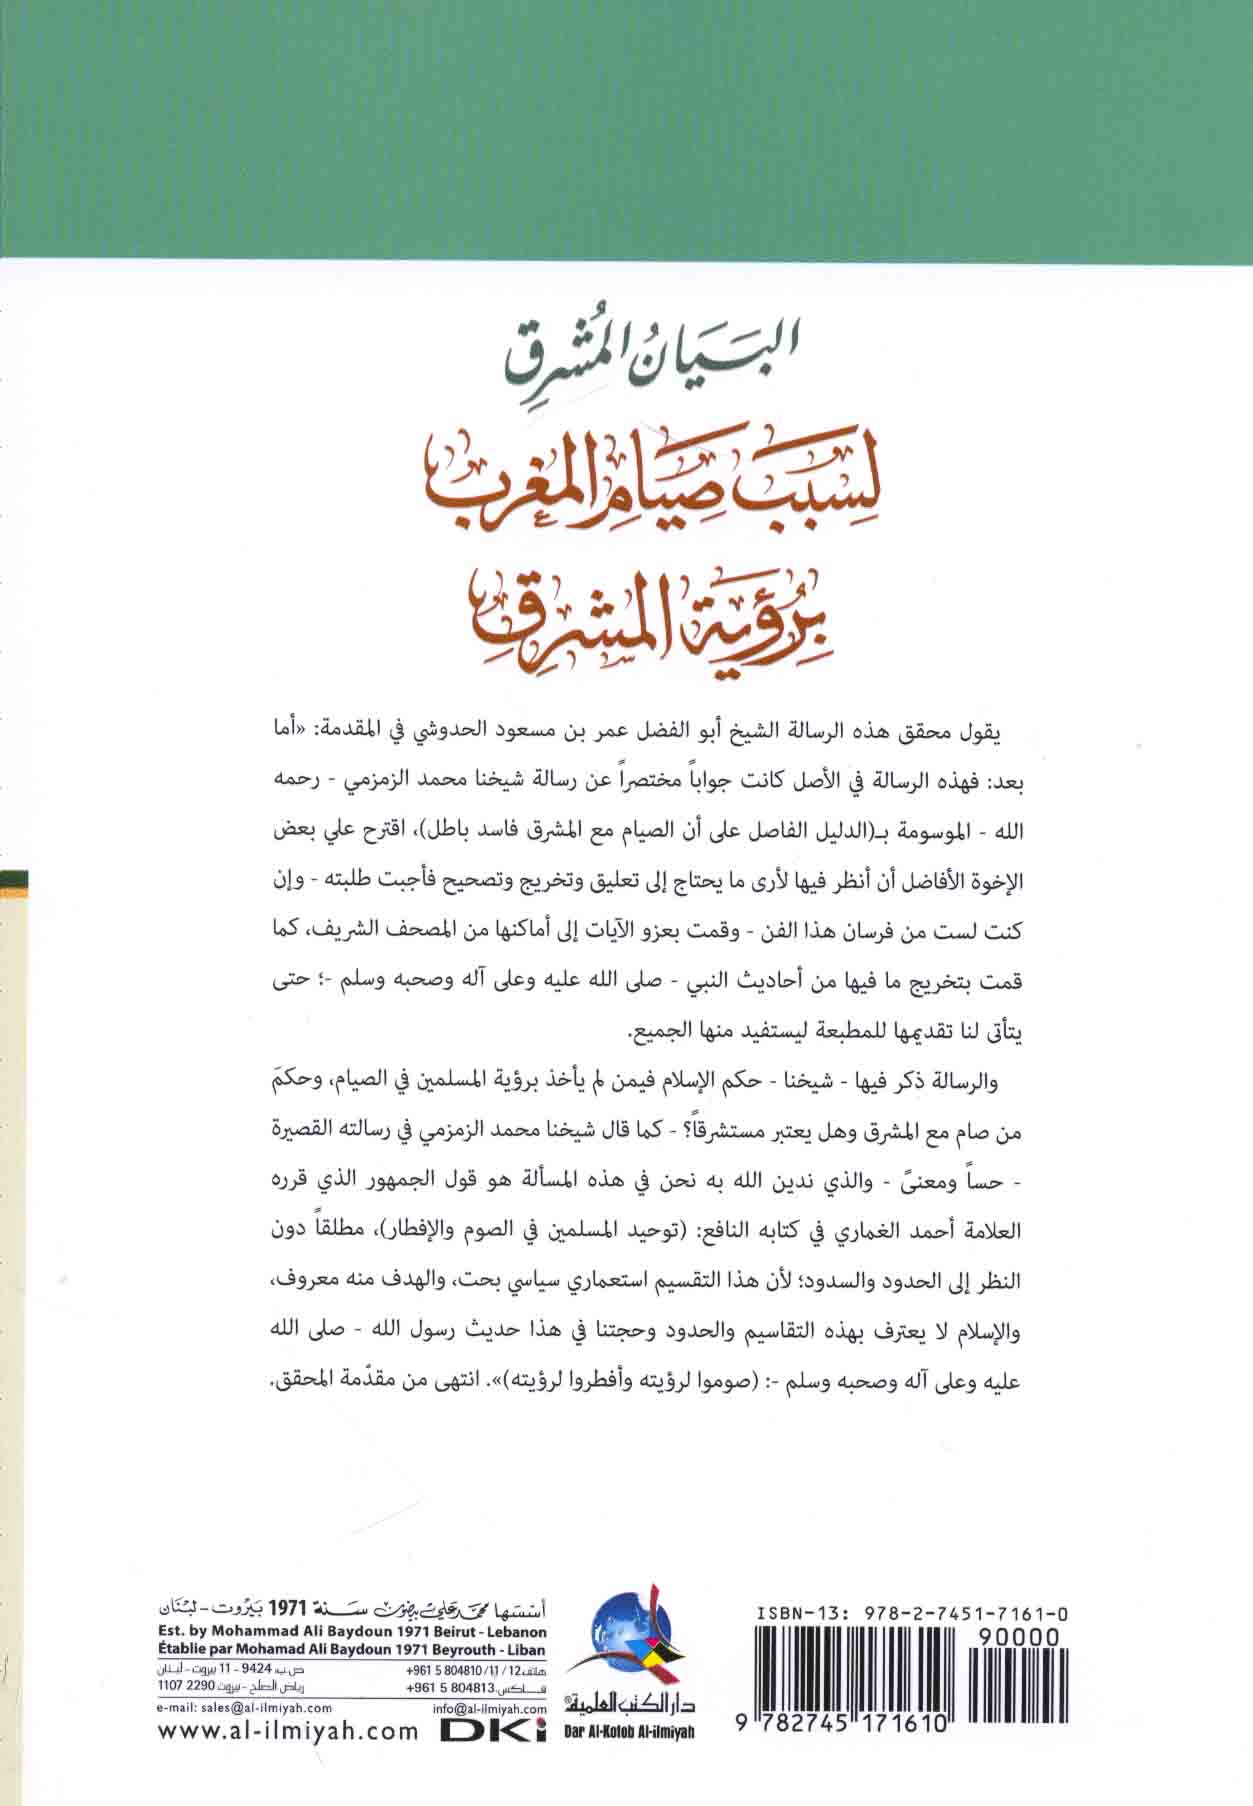 البَيَانُ المُشرِق
لسبب صيام المغرب
برؤية المشرق
يقول محقق هذه الرسالة الشيخ أبو الفضل عمر بن مسعود الحدوشي في المقدمة: «أما
بعد: فهذه الرسالة في الأصل كانت جواباً مختصراً عن رسالة شيخنا محمد الزمزمي - رحمه
الله - الموسومة بـ(الدليل الفاصل على أن الصيام مع المشرق فاسد باطل)، اقترح علي بعض
الإخوة الأفاضل أن أنظر فيها لأرى ما يحتاج إلى تعليق وتخريج وتصحيح فأجبت طلبته - وإن
كنت لست من فرسان هذا الفن - وقمت بعزو الآيات إلى أماكنها من المصحف الشريف، كما
قمت بتخريج ما فيها من أحاديث النبي - صلى الله عليه وعلى آله وصحبه وسلم -؛ حتى
يتأتى لنا تقديمها للمطبعة ليستفيد منها الجميع.
والرسالة ذكر فيها - شيخنا - حكم الإسلام فيمن لم يأخذ برؤية المسلمين في الصيام، وحكمَ
من صام مع المشرق وهل يعتبر مستشرقاً؟ - كما قال شيخنا محمد الزمزمي في رسالته القصيرة
- حساً ومعنىً - والذي ندين الله به نحن في هذه المسألة هو قول الجمهور الذي قرره
العلامة أحمد الغماري في كتابه النافع: (توحيد المسلمين في الصوم والإفطار)، مطلقاً دون
النظر إلى الحدود والسدود؛ لأن هذا التقسيم استعماري سياسي بحت، والهدف منه معروف،
والإسلام لا يعترف بهذه التقاسيم والحدود وحجتنا في هذا حديث رسول الله - صلى الله
عليه وعلى آله وصحبه وسلم -: (صوموا لرؤيته وأفطروا لرؤيته)». انتهى من مقدّمة المحقق.
ISBN-13: 978-2-7451-7161-0
90000
9 782745 171610
دار الكتب العلمية®
Dar Al-Kotob Al-ilmiyah
أسسها محمد علي بيضون سنة 1971 بيروت - لبنان
Est. by Mohammad Ali Baydoun 1971 Beirut - Lebanon
Établie par Mohamad Ali Baydoun 1971 Beyrouth - Liban
هاتف: +961 5 804810/11/12 ص.ب: 9424 - 11 بيروت - لبنان
فاكس: +961 5 804813 رياض الصلح - بيروت 2290 1107
e-mail: sales@al-ilmiyah.com info@al-ilmiyah.com
www.al-ilmiyah.com DKi